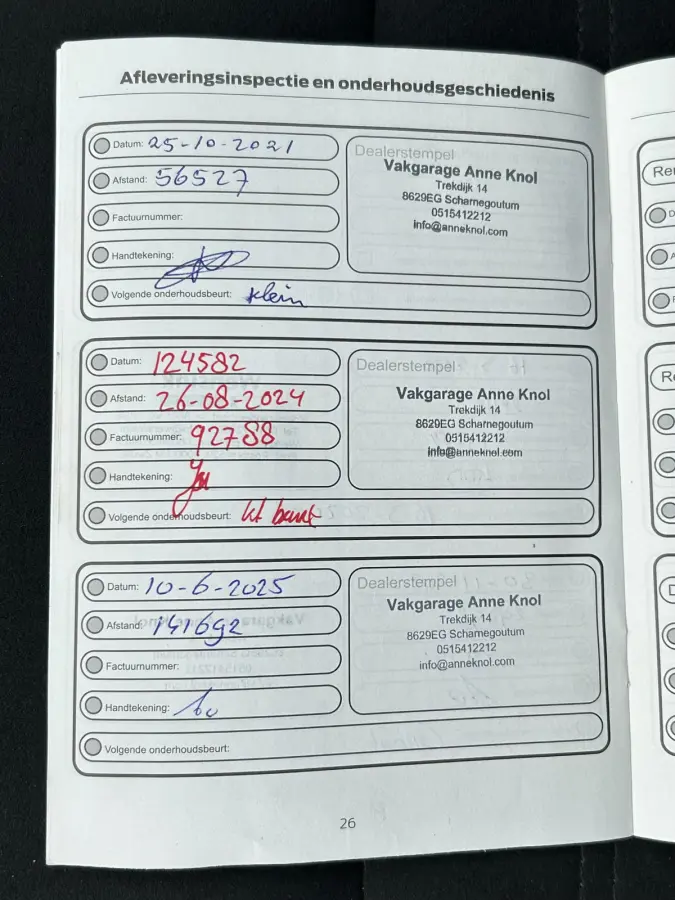 Afleveringsinspectie en onderhoudsgeschiedenis
Datum: 25-10-2021
Afstand: 56527
Factuurnummer:
Handtekening:
Volgende onderhoudsbeurt: klein
Dealerstempel
Vakgarage Anne Knol
Trekdijk 14
8629EG Scharnegoutum
0515412212
info@anneknol.com
Datum: 124582
Afstand: 26-08-2024
Factuurnummer: 92788
Handtekening:
Volgende onderhoudsbeurt: kl beurt
Dealerstempel
Vakgarage Anne Knol
Trekdijk 14
8629EG Scharnegoutum
0515412212
info@anneknol.com
Datum: 10-6-2025
Afstand: 141692
Factuurnummer:
Handtekening:
Volgende onderhoudsbeurt:
Dealerstempel
Vakgarage Anne Knol
Trekdijk 14
8629EG Scharnegoutum
0515412212
info@anneknol.com
26